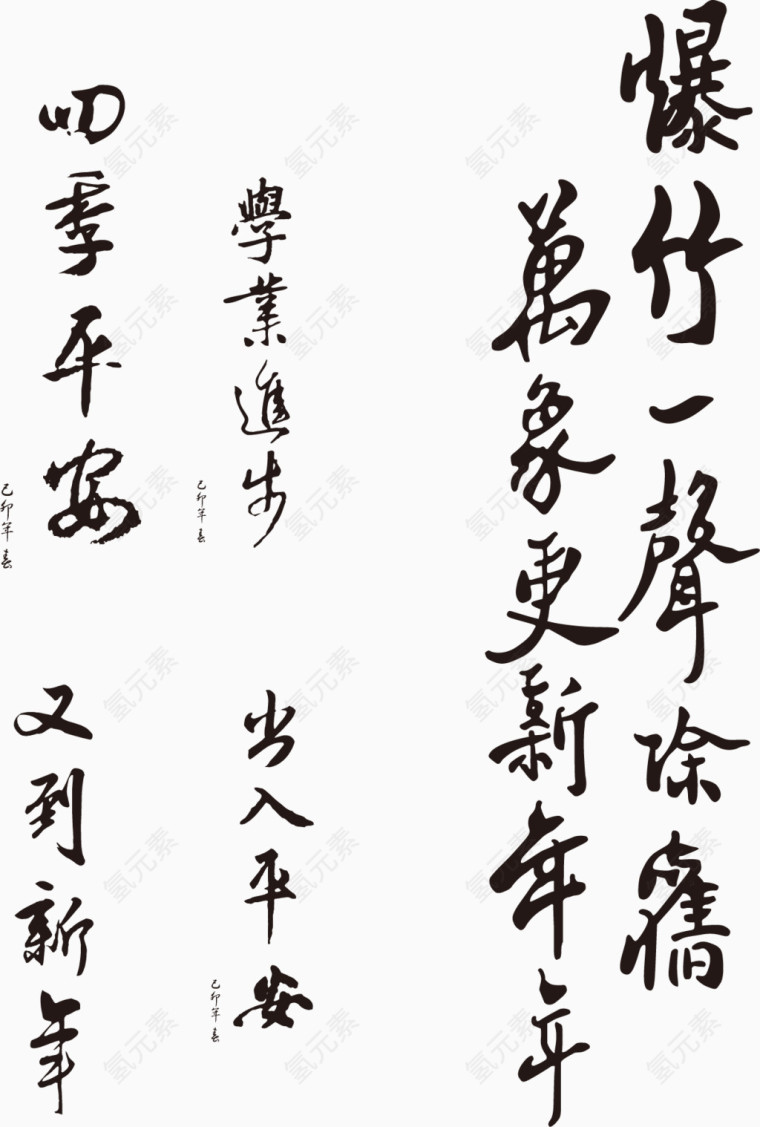 爆竹一聲除舊
萬象更新年年
學業進步
己卯年春
四季平安
己卯年春
出入平安
己卯年春
又到新年
氢元素